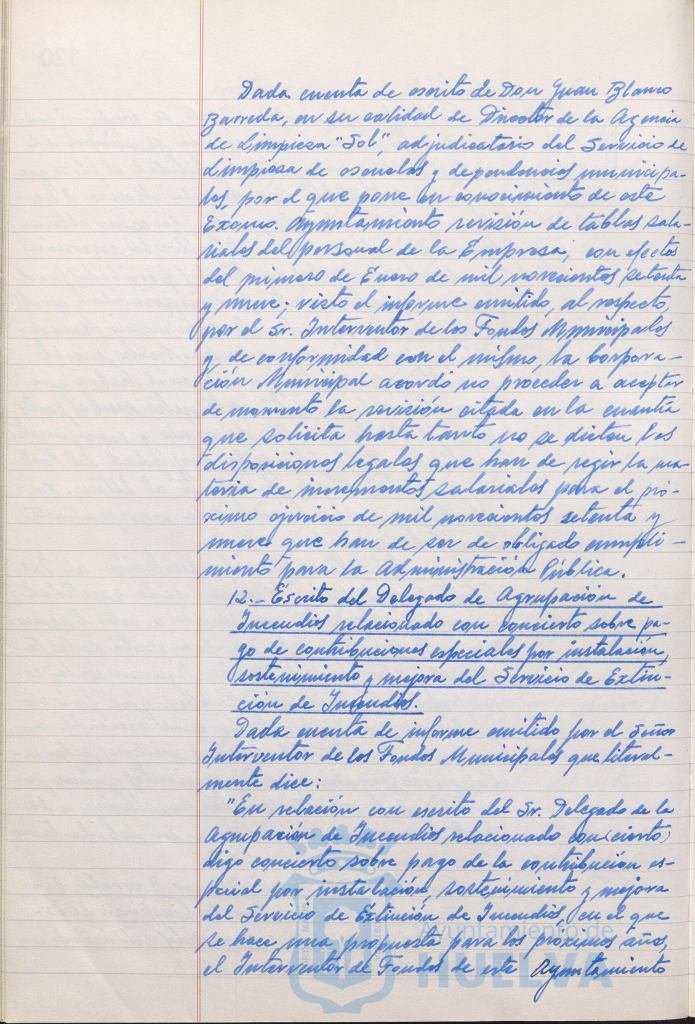 Dada cuenta de escrito de Don Juan Blanco
Barreda, en su calidad de Director de la Agencia
de Limpieza "Sol", adjudicatario del Servicio de
Limpieza de escuelas y dependencias municipa-
les, por el que pone en conocimiento de este
Excmo. Ayuntamiento revisión de tablas sala-
riales del personal de la Empresa, con efectos
del primero de Enero de mil novecientos setenta
y nueve; visto el informe emitido, al respecto,
por el Sr. Interventor de los Fondos Municipales
y, de conformidad con el mismo, la Corpora-
ción Municipal acordó no proceder a aceptar
de momento la revisión citada en la cuantía
que solicita hasta tanto no se dicten las
disposiciones legales que han de regir la ma-
teria de incrementos salariales para el pró-
ximo ejercicio de mil novecientos setenta y
nueve que han de ser de obligado cumpli-
miento para la Administración Pública.
12.- Escrito del Delegado de Agrupación de
Incendios relacionado con concierto sobre pa-
go de contribuciones especiales por instalación,
sostenimiento y mejora del Servicio de Extin-
ción de Incendios.
Dada cuenta de informe emitido por el Señor
Interventor de los Fondos Municipales que literal-
mente dice:
"En relación con escrito del Sr. Delegado de la
Agrupación de Incendios relacionado con (cierto)
digo concierto sobre pago de la contribución es-
pecial por instalación, sostenimiento y mejora
del Servicio de Extinción de Incendios, en el que
se hace una propuesta para los próximos años,
el Interventor de Fondos de este Ayuntamiento
Ayuntamiento de
HUELVA